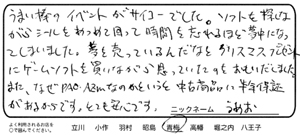 うまい棒のイベントがサイコーでした。ソフトを探しな
がらシールをあつめて回って時間を忘れるほど夢中になっ
てしまいました。夢を売っているんだなとクリスマスプレゼント
にゲームソフトを買いながら思っていたのをおもいだしました。
また、なぜPAO・AZUMなのかというと中古商品に半年保証
があるからです。とても安心です。
ニックネーム うめお
よく行くお店を
○で囲んでください。
立川 小作 羽村 昭島 青梅 高幡 堀之内 八王子